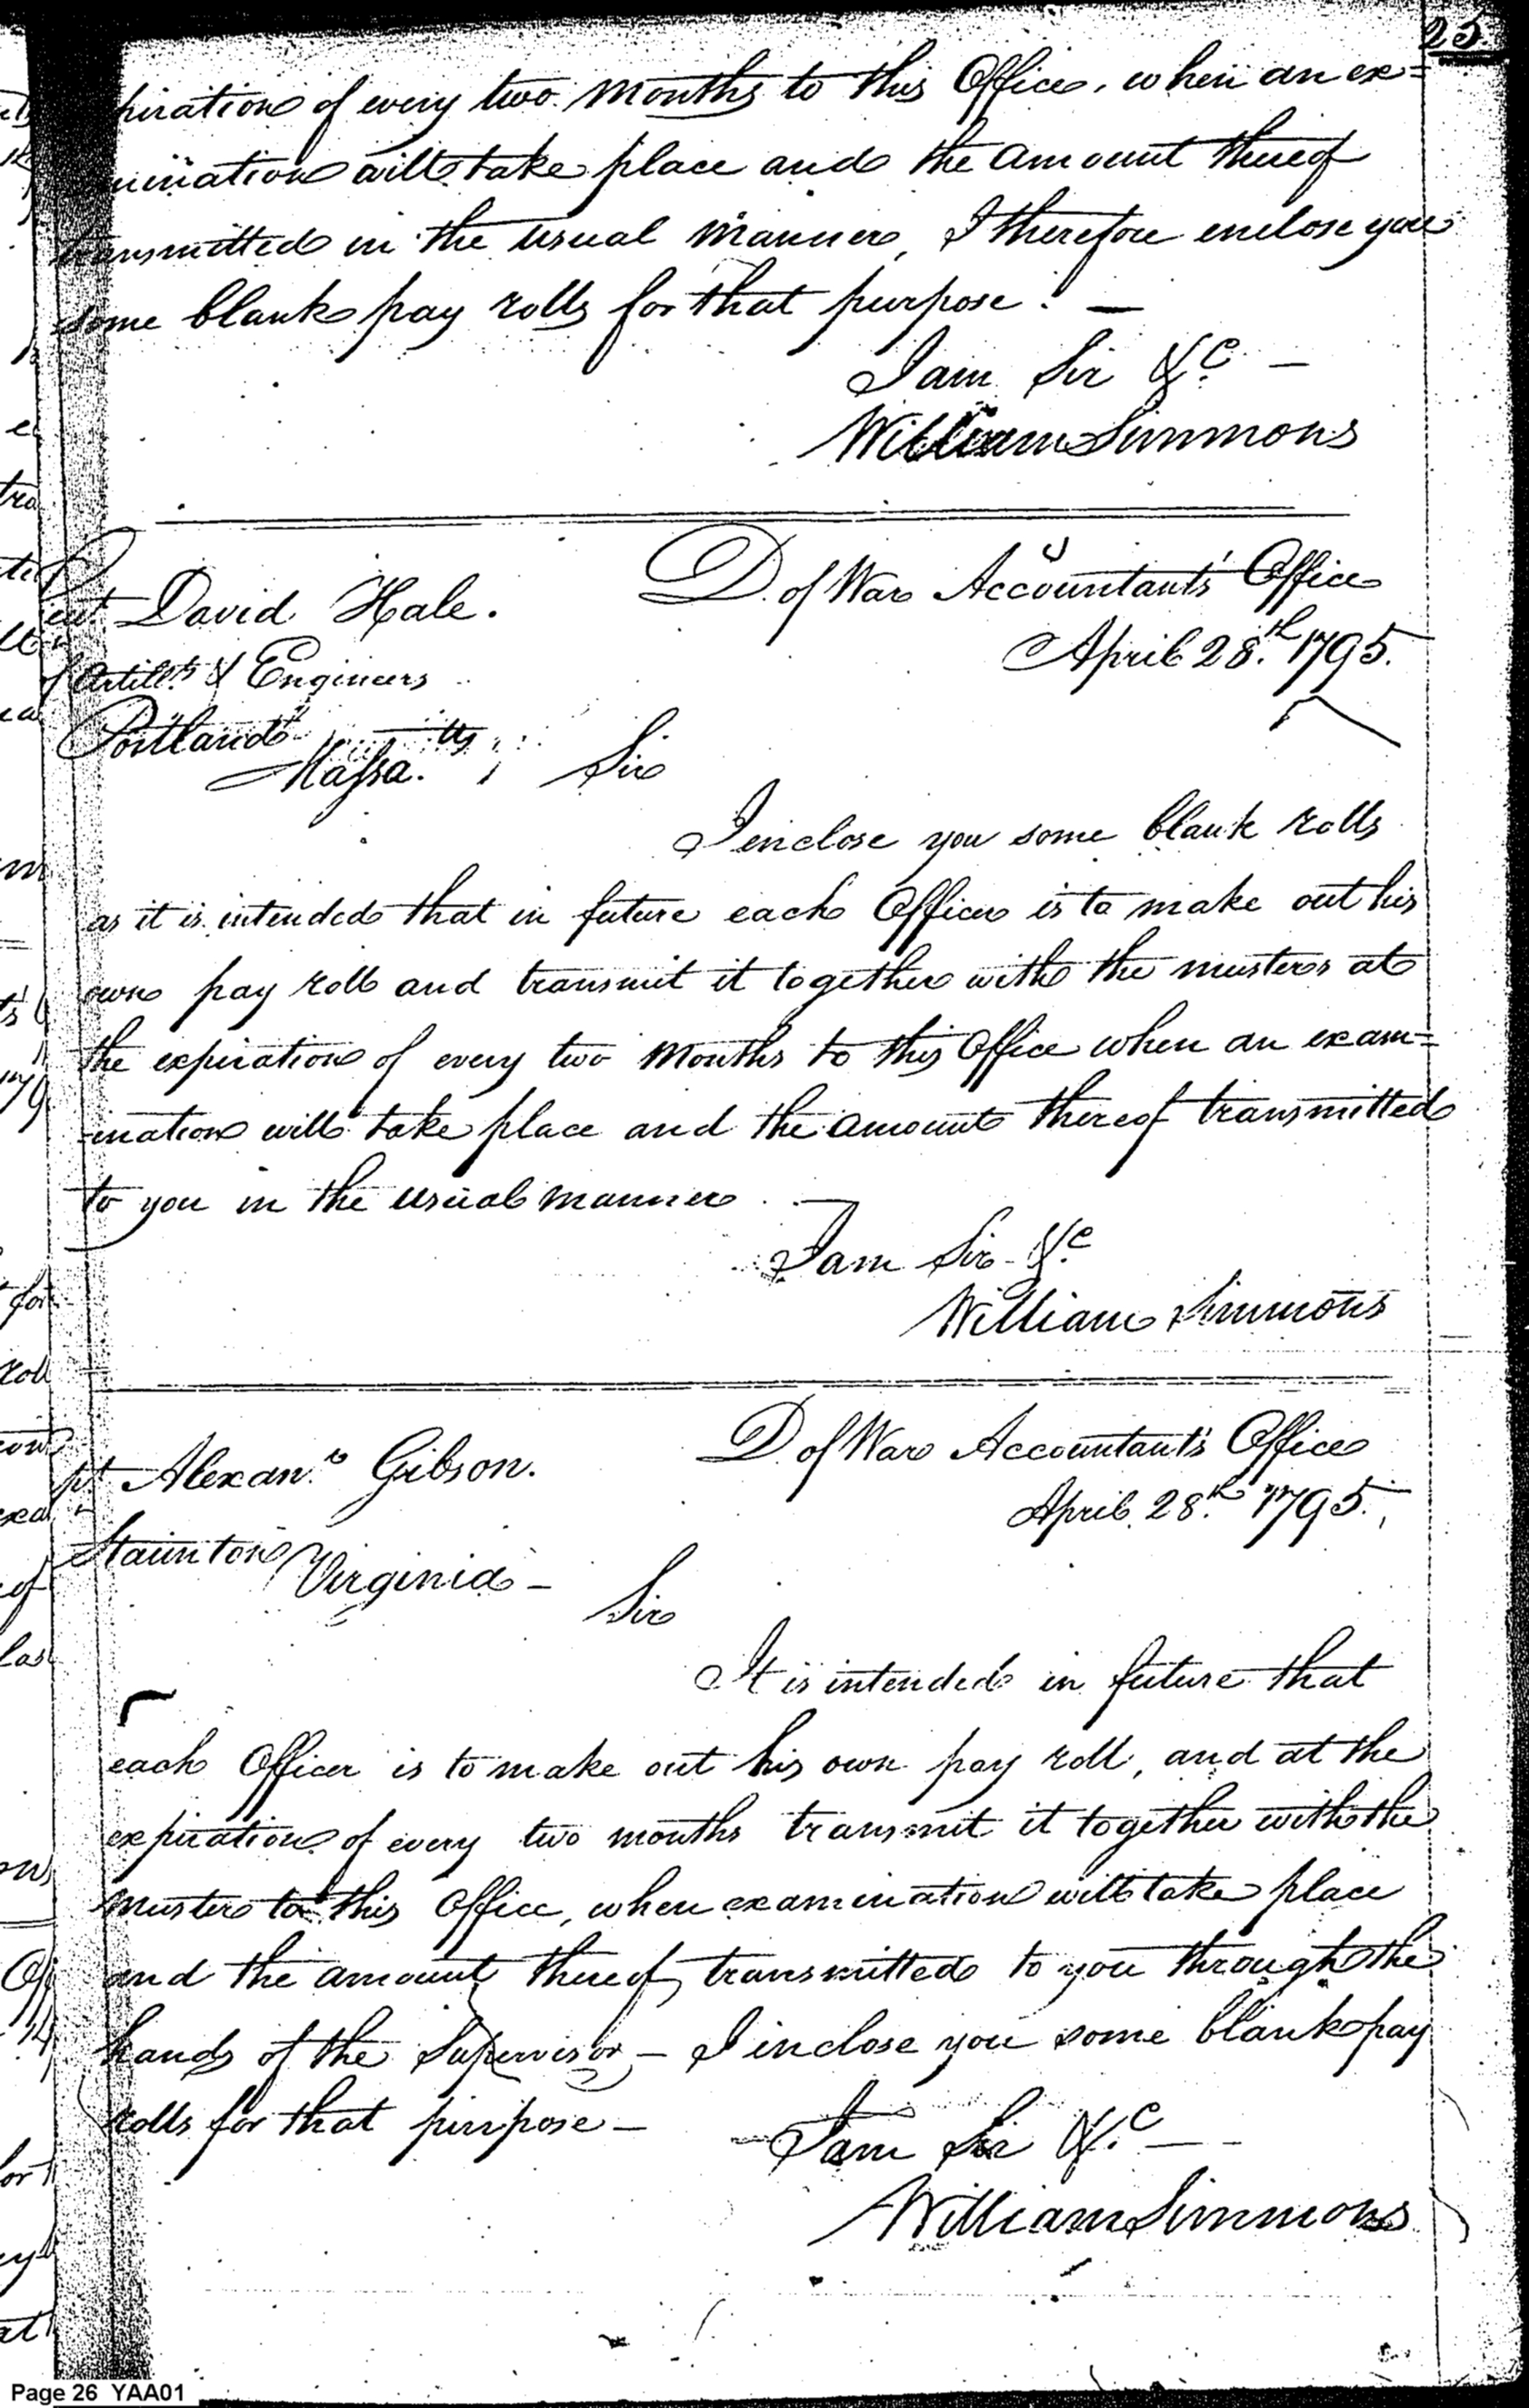 25.
piration of every two months to this Office, when an ex=
mination will take place and the amount thereof
transmitted in the usual manner, I therefore enclose you
some blank pay rolls for that purpose. —
I am Sir &c. —
William Simmons
D. of War Accountant's Office
April 28.th 1795.
Lieut. David Hale.
of Artill.ts & Engineers
Portland
Massa.tts
Sir
I enclose you some blank rolls
as it is intended that in future each Officer is to make out his
own pay roll and transmit it together with the musters at
the expiration of every two months to this Office when an exam=
=ination will take place and the amount thereof transmitted
to you in the usual manner. —
I am Sir &c
William Simmons
D. of War Accountant's Office
April 28.th 1795.
pt. Alexan.r Gibson.
Staunton
Virginia —
Sir
It is intended in future that
each Officer is to make out his own pay roll, and at the
expiration of every two months transmit it together with the
muster to this Office, when examination will take place
and the amount thereof transmitted to you through the
hands of the Supervisor — I inclose you some blank pay
rolls for that purpose —
I am Sir &c. —
William Simmons
Page 26 YAA01